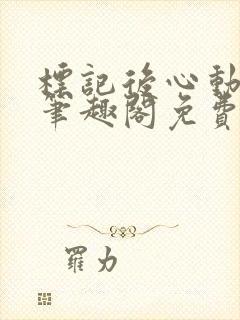 標記後心動
筆趣閣免費
羅力